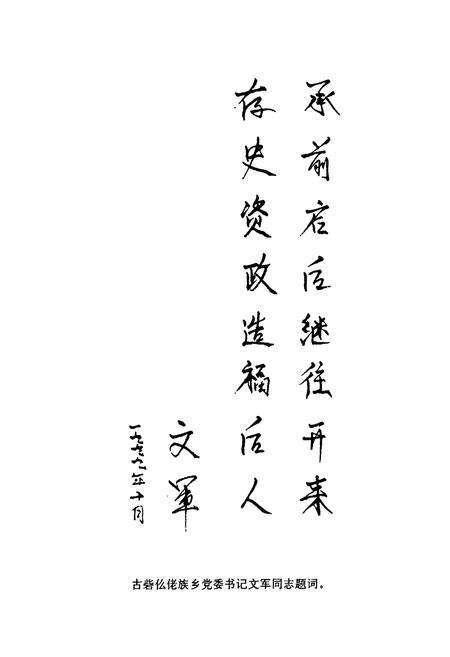 承前启后继往开来
存史资政造福后人
文軍
一九九九年十月
古砦仫佬族乡党委书记文军同志题词。